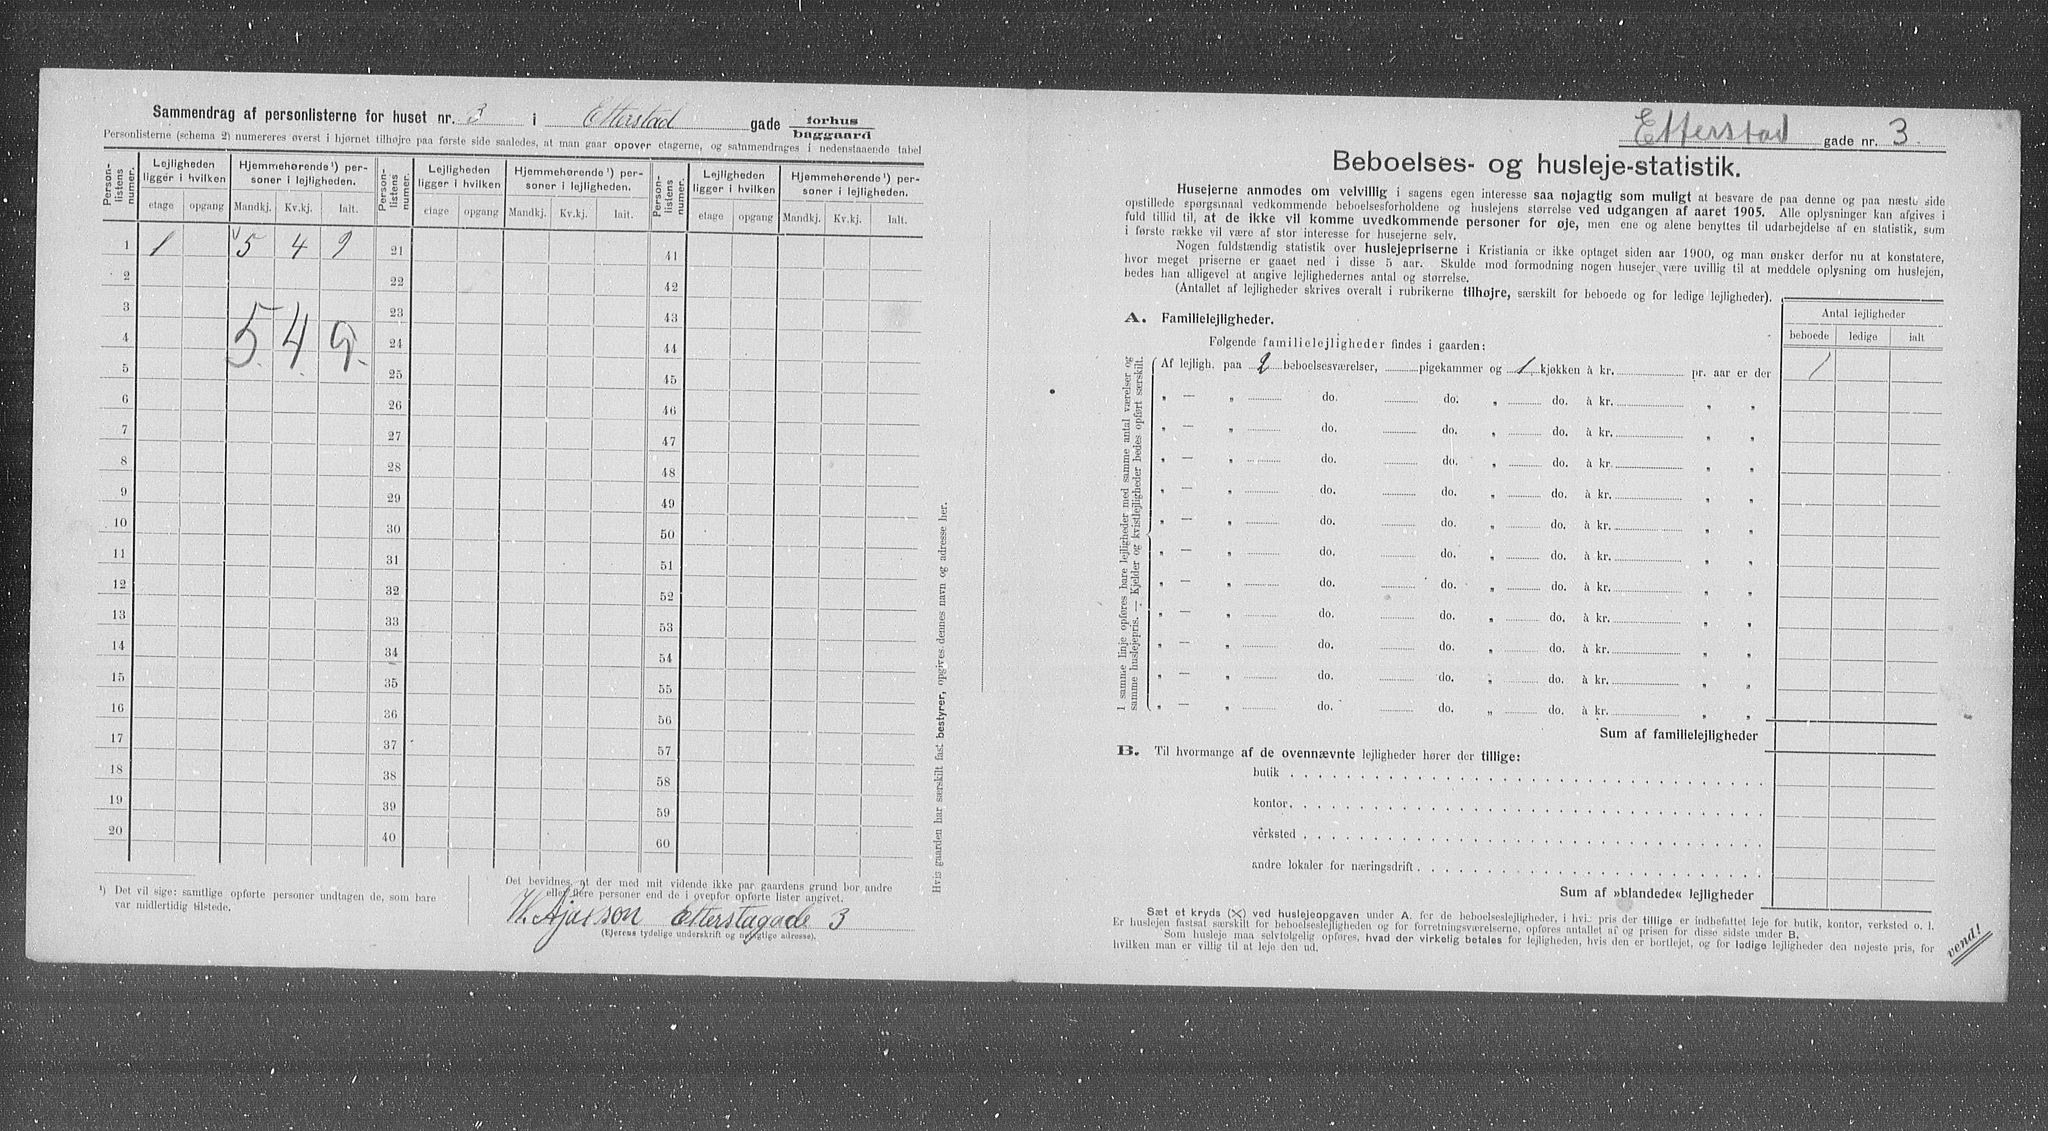 Sammendrag af personlisterne for huset nr. 3 i Etterstad gade forhus baggaard
Personlisterne (schema 2) numereres øverst i hjørnet tilhøjre paa første side saaledes, at man gaar opover etagerne, og sammendrages i nedenstaaende tabel
Personlistens numer. Lejligheden ligger i hvilken Hjemmehørende¹) personer i lejligheden. Personlistens numer. Lejligheden ligger i hvilken Hjemmehørende¹) personer i lejligheden. Personlistens numer. Lejligheden ligger i hvilken Hjemmehørende¹) personer i lejligheden.
etage opgang Mandkj. Kv.kj. Ialt. etage opgang Mandkj. Kv.kj. Ialt. etage opgang Mandkj. Kv.kj. Ialt.
1 1 5 4 9 21 41
2 22 42
3 23 43
5. 4. 9.
4 24 44
5 25 45
6 26 46
7 27 47
8 28 48
9 29 49
10 30 50
11 31 51
12 32 52
13 33 53
14 34 54
15 35 55
16 36 56
17 37 57
18 38 58
19 39 59
20 40 60
¹) Det vil sige: samtlige opførte personer undtagen de, som bare
var midlertidig tilstede.
Det bevidnes, at der med mit vidende ikke paa gaardens grund bor andre
eller flere personer end de i ovenfor opførte lister angivet.
Etterstagade 3
(Ejerens tydelige underskrift og nøjagtige adresse).
Hvis gaarden har særskilt fast bestyrer, opgives dennes navn og adresse her.
Etterstad gade nr. 3
Beboelses- og husleje-statistik.
Husejerne anmodes om velvillig i sagens egen interesse saa nøjagtig som muligt at besvare de paa denne og paa næste side
opstillede spørgsmaal vedkommende beboelsesforholdene og huslejens størrelse ved udgangen af aaret 1905. Alle oplysninger kan afgives i
fuld tillid til, at de ikke vil komme uvedkommende personer for øje, men ene og alene benyttes til udarbejdelse af en statistik, som
i første række vil være af stor interesse for husejerne selv.
Nogen fuldstændig statistik over huslejepriserne i Kristiania er ikke optaget siden aar 1900, og man ønsker derfor nu at konstatere,
hvor meget priserne er gaaet ned i disse 5 aar. Skulde mod formodning nogen husejer være uvillig til at meddele oplysning om huslejen,
bedes han alligevel at angive lejlighedernes antal og størrelse.
(Antallet af lejligheder skrives overalt i rubrikerne tilhøjre, særskilt for beboede og for ledige lejligheder).
A. Familielejligheder.
Antal lejligheder
beboede ledige ialt
Følgende familielejligheder findes i gaarden:
Af lejligh. paa 2 beboelsesværelser, pigekammer og 1 kjøkken à kr. pr. aar er der 1
„ — „ do. do. „ do. à kr. „ „
„ — „ do. do. „ do. à kr. „ „
„ — „ do. do. „ do. à kr. „ „
„ — „ do. do. „ do. à kr. „ „
„ — „ do. do. „ do. à kr. „ „
„ — „ do. do. „ do. à kr. „ „
„ — „ do. do. „ do. à kr. „ „
„ — „ do. do. „ do. à kr. „ „
„ — „ do. do. „ do. à kr. „ „
„ — „ do. do. „ do. à kr. „ „
„ — „ do. do. „ do. à kr. „ „
I samme linje opføres bare lejligheder med samme antal værelser og
samme huslejepris. — Kjelder og kvistlejligheder bedes opført særskilt.
Sum af familielejligheder
B. Til hvormange af de ovennævnte lejligheder hører der tillige:
butik
kontor
verksted
andre lokaler for næringsdrift
Sum af »blandede« lejligheder
Sæt et kryds (X) ved huslejeopgaven under A. for de beboelseslejligheder, i hvis pris der tillige er indbefattet leje for butik, kontor, verksted o. l.
Er huslejen fastsat særskilt for beboelseslejligheden og for forretningsværelserne, opføres antallet af og prisen for disse sidste under B.
Som husleje maa selvfølgelig opføres, hvad der virkelig betales for lejligheden, hvis den er bortlejet, og for ledige lejligheder den nøjeste pris, for
hvilken man er villig til at leje den ud.
vend!